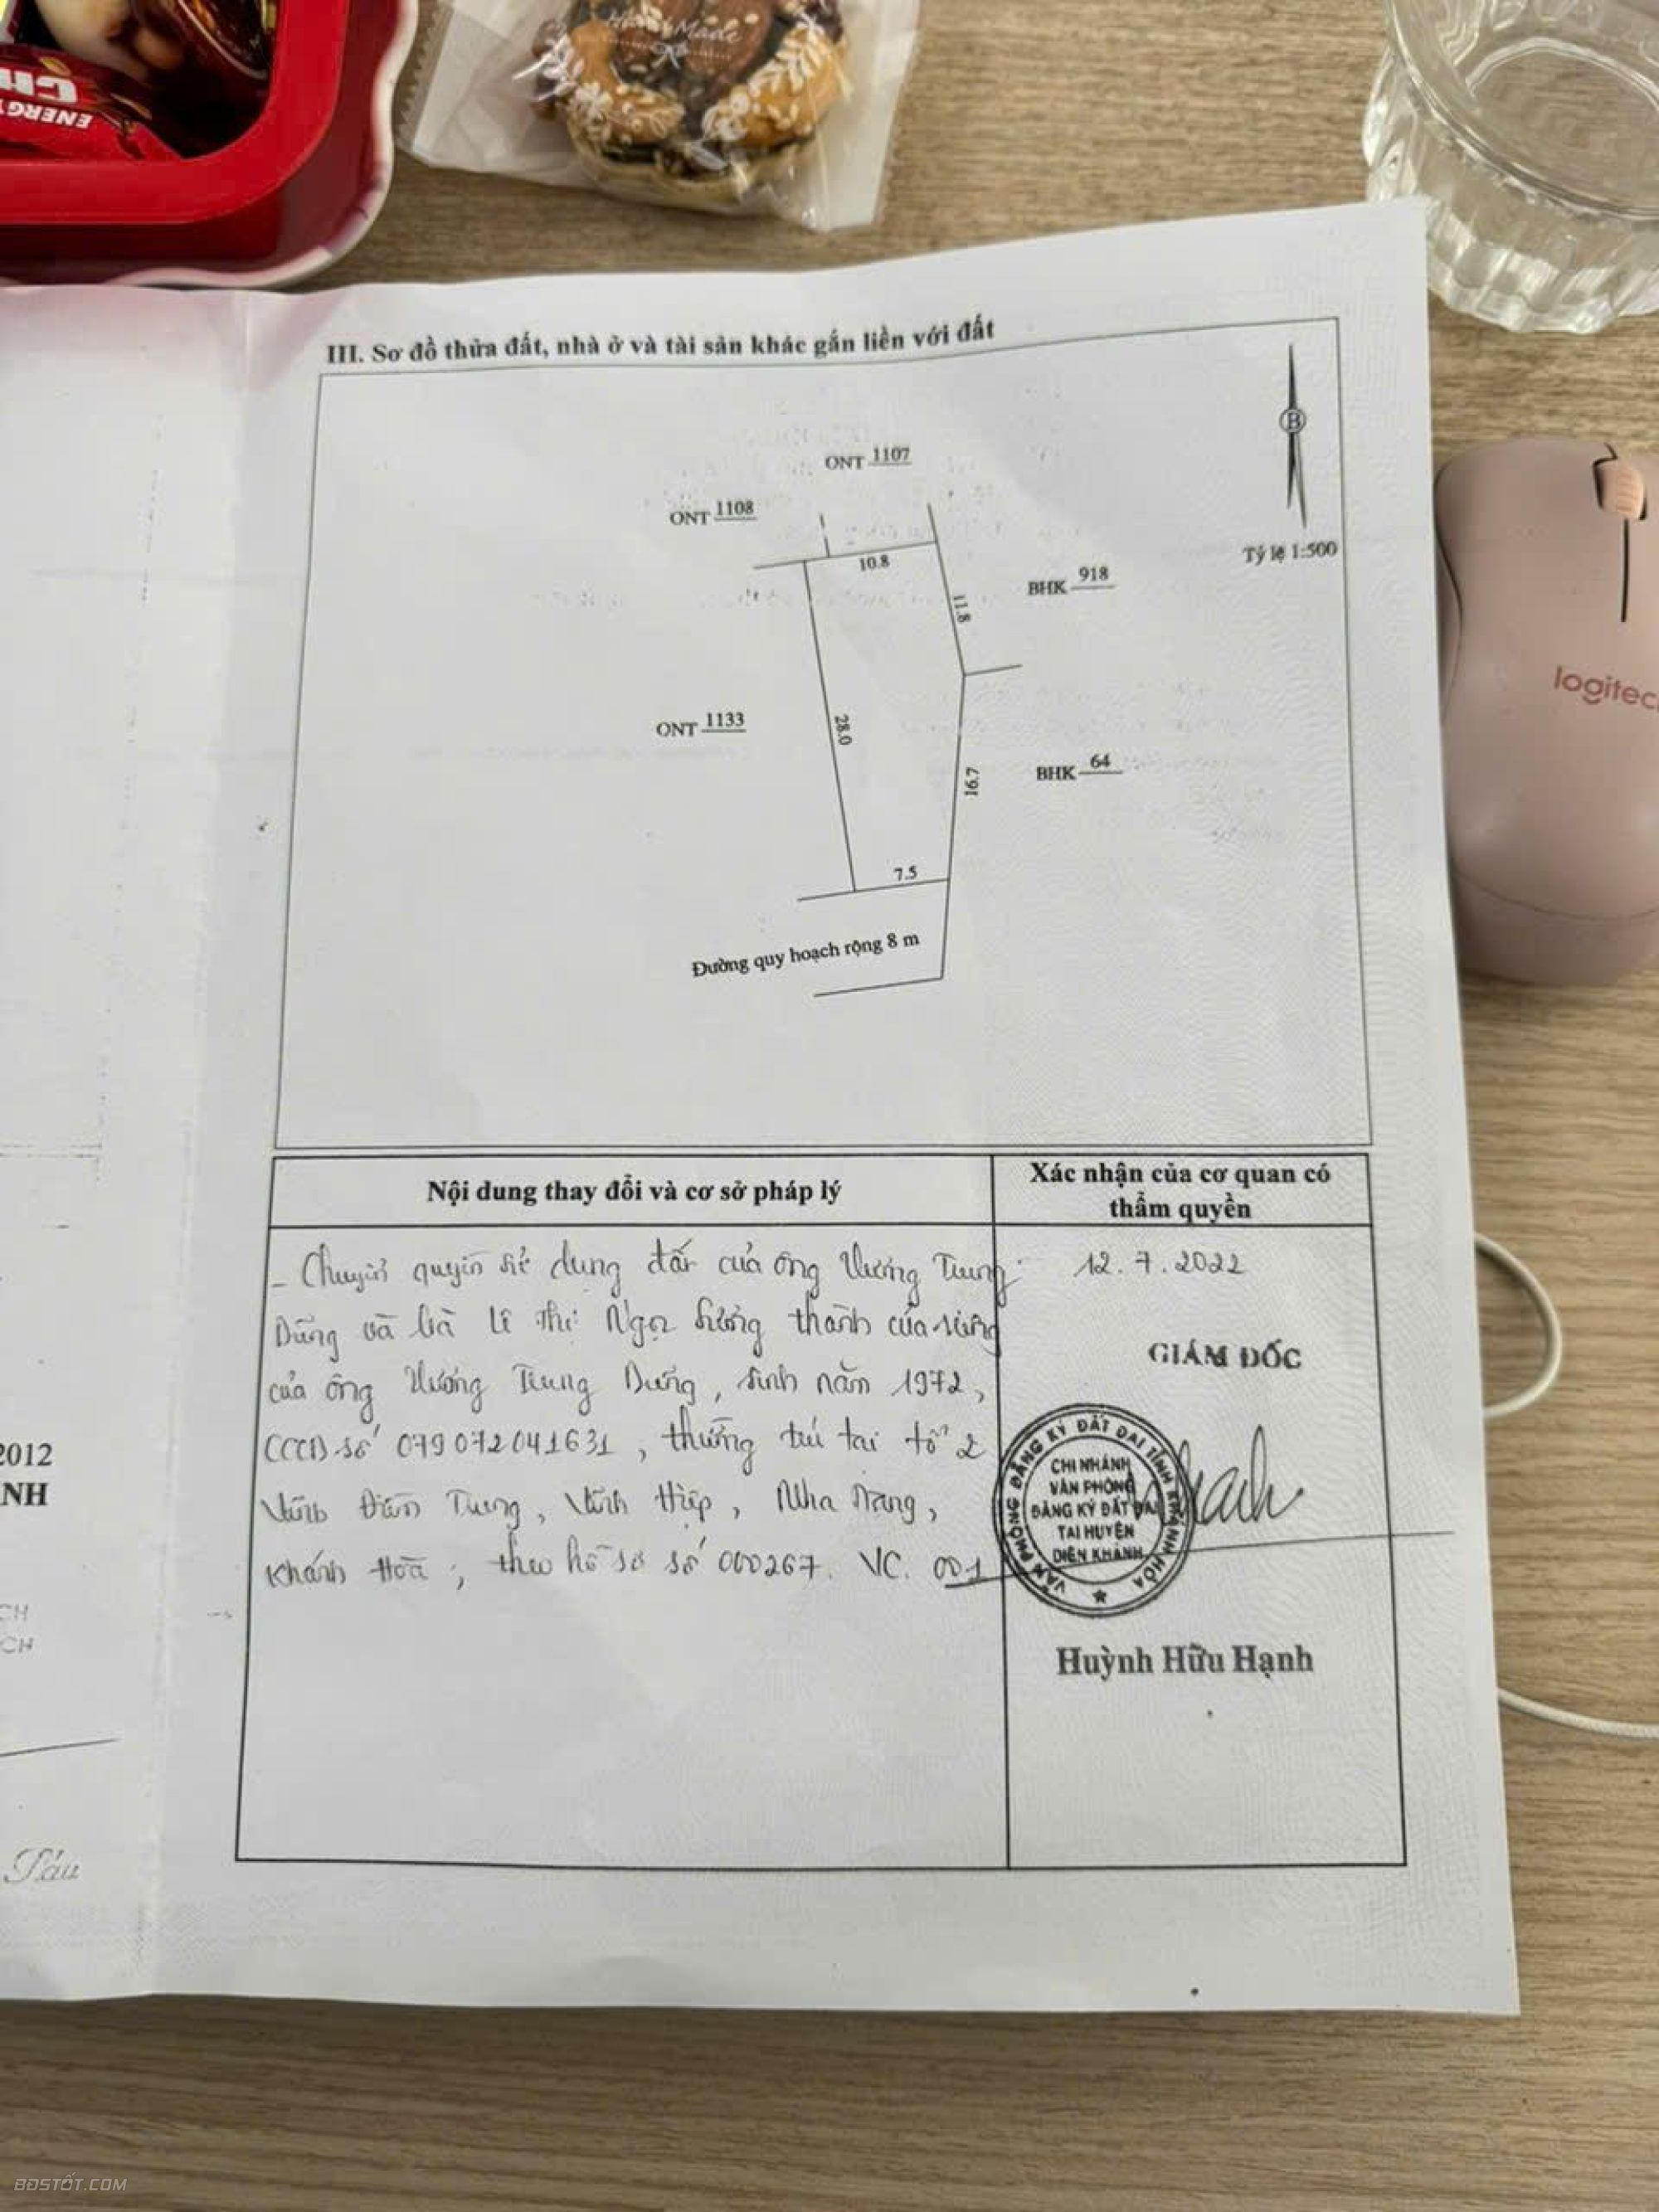 ENERGY
Hand Made
III. Sơ đồ thửa đất, nhà ở và tài sản khác gắn liền với đất
B
Tỷ lệ 1:500
ONT 1107
ONT 1108
10.8
BHK 918
11.8
ONT 1133
28.0
BHK 64
16.7
7.5
Đường quy hoạch rộng 8 m
logitec
Nội dung thay đổi và cơ sở pháp lý
Xác nhận của cơ quan có
thẩm quyền
- Chuyển quyền sử dụng đất của ông Vương Trung
Dũng và bà Lê Thị Ngọc Sương thành của riêng
của ông Vương Trung Dũng, sinh năm 1972,
CCCD số 079072041631, thường trú tại tổ 2
Vĩnh Điềm Trung, Vĩnh Hiệp, Nha Trang,
Khánh Hòa; theo hồ sơ số 000267. VC. 001
12.7.2022
GIÁM ĐỐC
VĂN PHÒNG ĐĂNG KÝ ĐẤT ĐAI TỈNH KHÁNH HÒA
CHI NHÁNH
VĂN PHÒNG
ĐĂNG KÝ ĐẤT ĐAI
TẠI HUYỆN
DIÊN KHÁNH
Huỳnh Hữu Hạnh
2012
NH
CH
CH
BĐSTỐT.COM